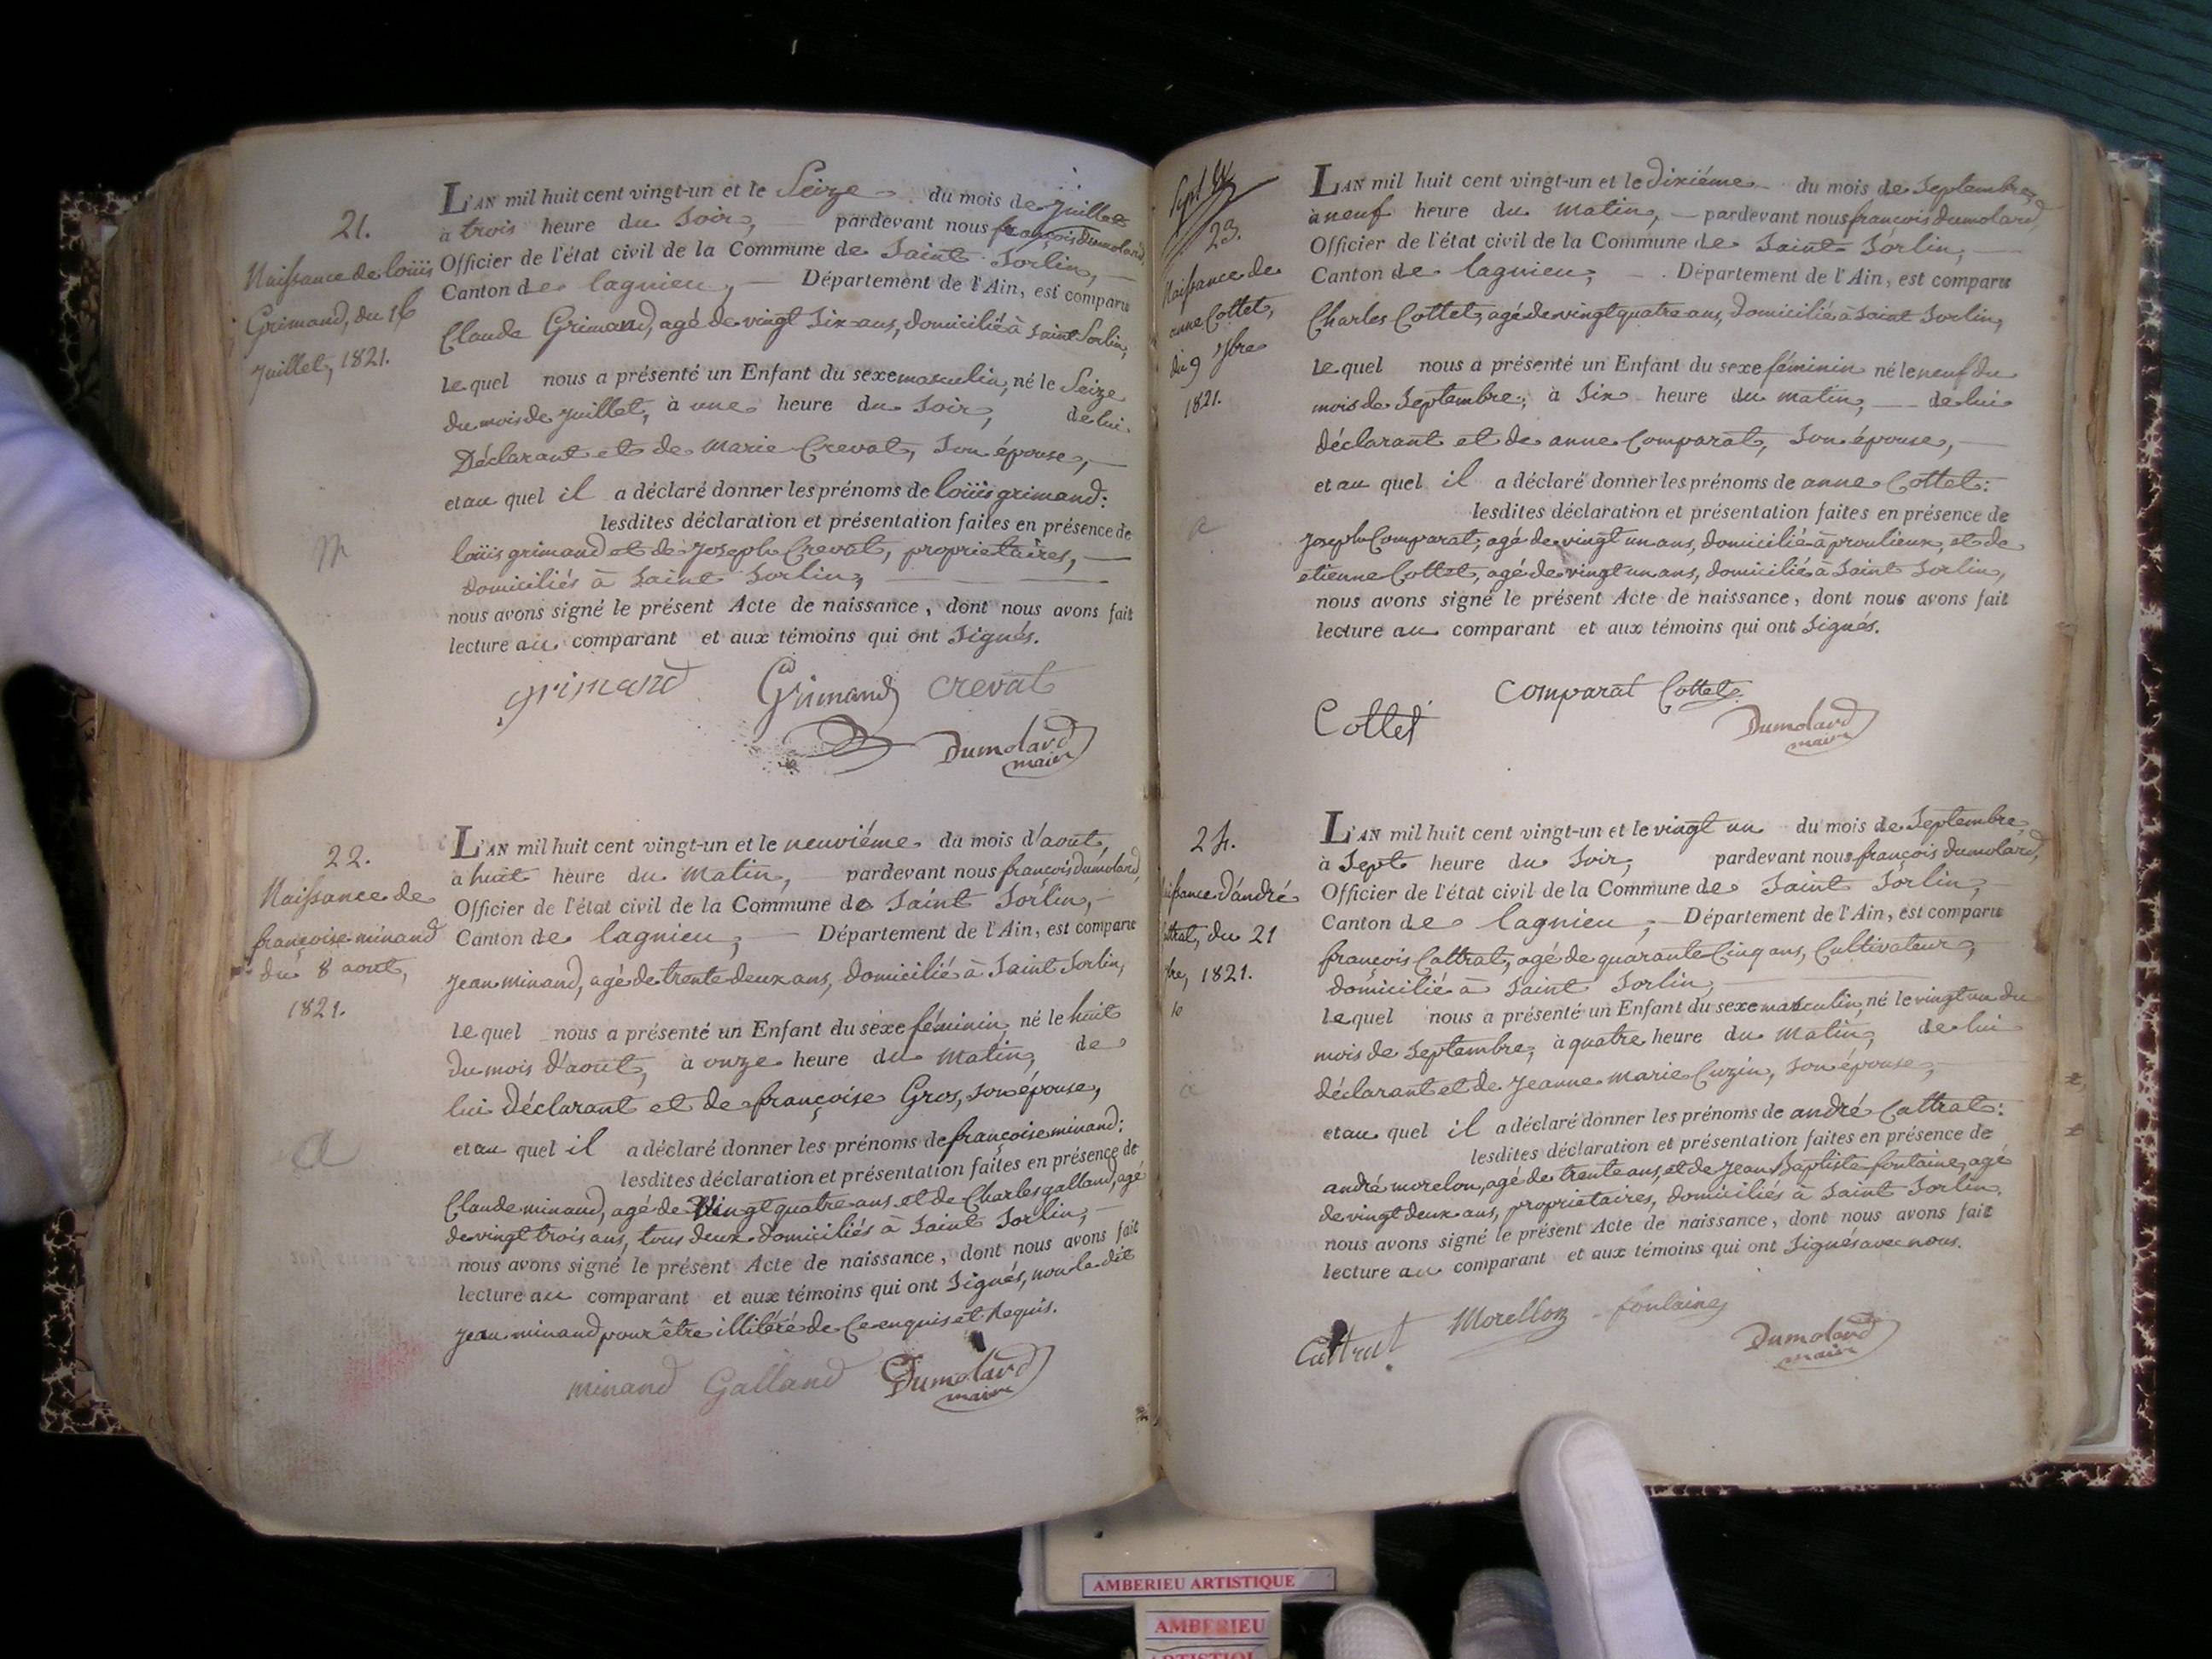 21.
Naissance de loüis
Grimand, du 16
juillet, 1821.
L'AN mil huit cent vingt-un et le Seize du mois de juillet
à trois heure du Soir, pardevant nous françois Dumolard,
Officier de l'état civil de la Commune de Saint Sorlin,
Canton de lagnieu, Département de l'Ain, est comparu
Claude Grimand, agé de vingt Six ans, domicilié à Saint Sorlin,
le quel nous a présenté un Enfant du sexe masculin, né le Seize
du mois de juillet, à une heure du Soir, de lui
Déclarant et de marie Crevat, Son épouse,
et au quel il a déclaré donner les prénoms de loüis grimand:
lesdites déclaration et présentation faites en présence de
loüis grimand et de joseph Crevat, propriétaires,
domiciliés à Saint Sorlin,
nous avons signé le présent Acte de naissance, dont nous avons fait
lecture au comparant et aux témoins qui ont Signés.
grimand Grimand crevat
Dumolard
maire
22.
Naissance de
françoise minand
du 8 aout,
1821.
L'AN mil huit cent vingt-un et le neuviéme du mois d'aout,
à huit heure du Matin, pardevant nous françois dumolard,
Officier de l'état civil de la Commune de Saint Sorlin,
Canton de lagnieu, Département de l'Ain, est comparu
jean minand, agé de trente deux ans, domicilié à Saint Sorlin,
le quel nous a présenté un Enfant du sexe féminin, né le huit
du mois d'aout, à onze heure du Matin, de
lui Déclarant et de françoise Gros, son épouse,
et au quel il a déclaré donner les prénoms de françoise minand:
lesdites déclaration et présentation faites en présence de
Claude minand, agé de Vingt quatre ans et de Charles galland, agé
de vingt trois ans, tous deux domiciliés à Saint Sorlin,
nous avons signé le présent Acte de naissance, dont nous avons fait
lecture au comparant et aux témoins qui ont Signés, non le dit
jean minand pour être illitéré de Ce enquis et Requis.
minand Galland Dumolard
maire
23.
Naissance de
anne Cottet,
du 9 7bre
1821.
L'AN mil huit cent vingt-un et le dixiéme du mois de Septembre,
à neuf heure du Matin, pardevant nous françois dumolard,
Officier de l'état civil de la Commune de Saint Sorlin,
Canton de lagnieu, Département de l'Ain, est comparu
Charles Cottet, agé de vingt quatre ans, domicilié à Saint Sorlin,
le quel nous a présenté un Enfant du sexe féminin né le neuf du
mois de Septembre, à Six heure du matin, de lui
déclarant et de anne Comparat, Son épouse,
et au quel il a déclaré donner les prénoms de anne Cottet:
lesdites déclaration et présentation faites en présence de
joseph Comparat, agé de vingt un ans, domicilié à proulieux, et de
etienne Cottet, agé de vingt un ans, domicilié à Saint Sorlin,
nous avons signé le présent Acte de naissance, dont nous avons fait
lecture au comparant et aux témoins qui ont Signés.
Cottet Comparat Cottet
Dumolard
maire
24.
issance d'andré
ttrat, du 21
bre, 1821.
L'AN mil huit cent vingt-un et le vingt un du mois de Septembre,
à Sept heure du Soir, pardevant nous françois dumolard,
Officier de l'état civil de la Commune de Saint Sorlin,
Canton de lagnieu, Département de l'Ain, est comparu
françois Cattrat, agé de quarante Cinq ans, Cultivateur,
domicilié à Saint Sorlin,
le quel nous a présenté un Enfant du sexe masculin, né le vingt un du
mois de Septembre, à quatre heure du Matin, de lui
déclarant et de jeanne marie Cuzin, son épouse,
et au quel il a déclaré donner les prénoms de andré Cattrat:
lesdites déclaration et présentation faites en présence de
andré morelon, agé de trente ans, et de jean Baptiste fontaine, agé
de vingt deux ans, propriétaires, domiciliés à Saint Sorlin,
nous avons signé le présent Acte de naissance, dont nous avons fait
lecture au comparant et aux témoins qui ont Signés avec nous.
Cattrat Morellon fontaine
Dumolard
maire
AMBERIEU ARTISTIQUE
AMBERIEU
ARTISTIQUE